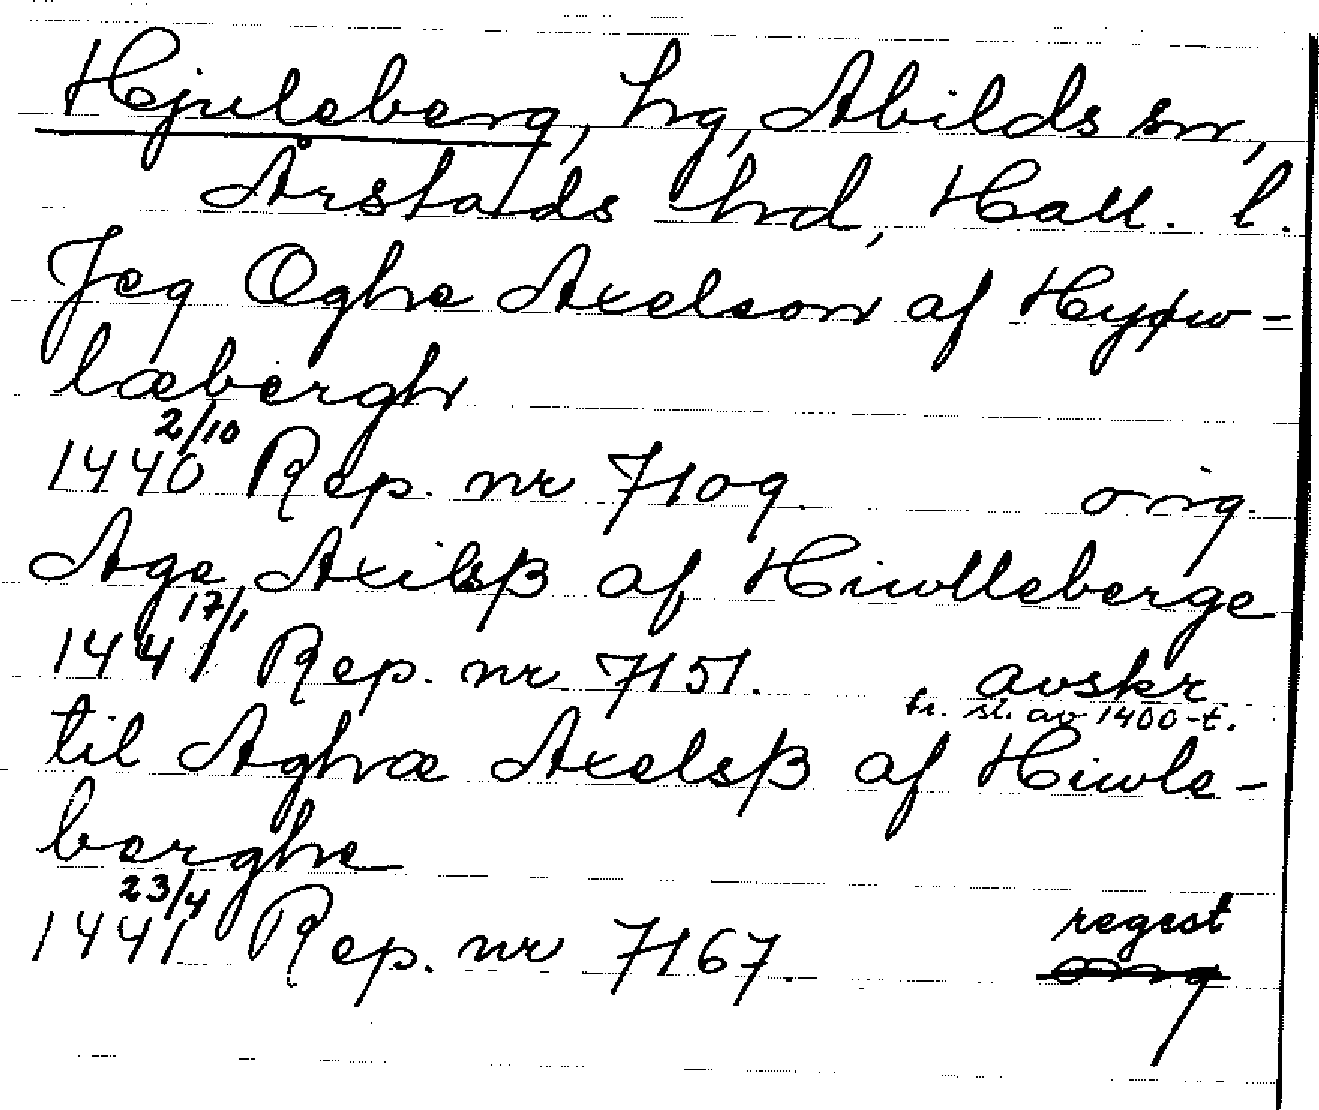 Hjuleberg, hg, Abilds sn,
Årstads hd, Hall. l.
Jeg Oghe Axelson af Hyþw-
læbergh
2/10
1440 Rep. nr 7109. orig.
Age Axilsß af Hiwlleberge
17/1
1441 Rep. nr 7151. avskr
fr. sl. av 1400-t.
til Aghæ Axelsß af Hiwle-
berghe
23/4
1441 Rep. nr 7167. regest
orig